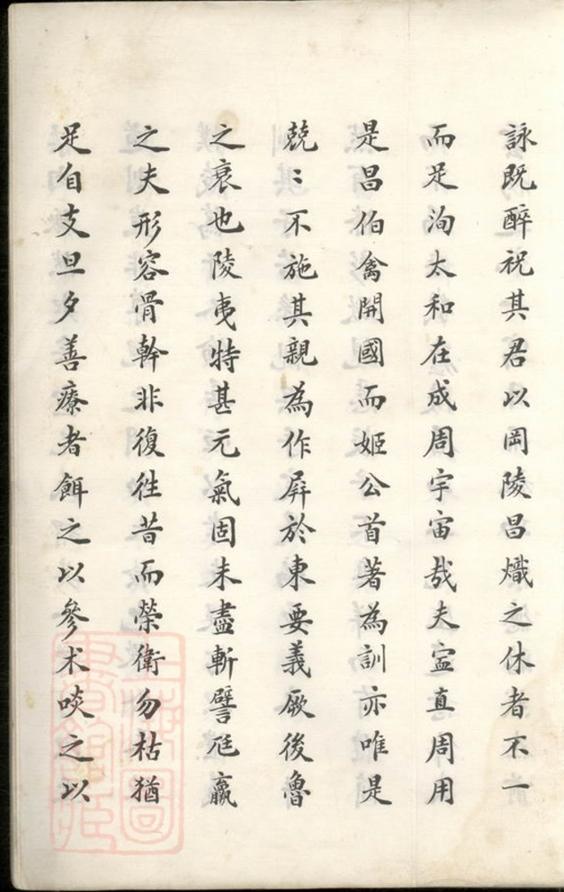 詠既醉祝其君以岡陵昌熾之休者不一
而足洵太和在成周宇宙哉夫寍直周用
是昌伯禽開國而姬公首著為訓亦唯是
兢〻不施其親為作屛於東要義厥後魯
之衰也陵夷特甚元氣固未盡斬譬尫羸
之夫形容骨幹非復徃昔而榮衛勿枯猶
足自支旦夕善療者餌之以參术啖之以
上海圖
書館藏